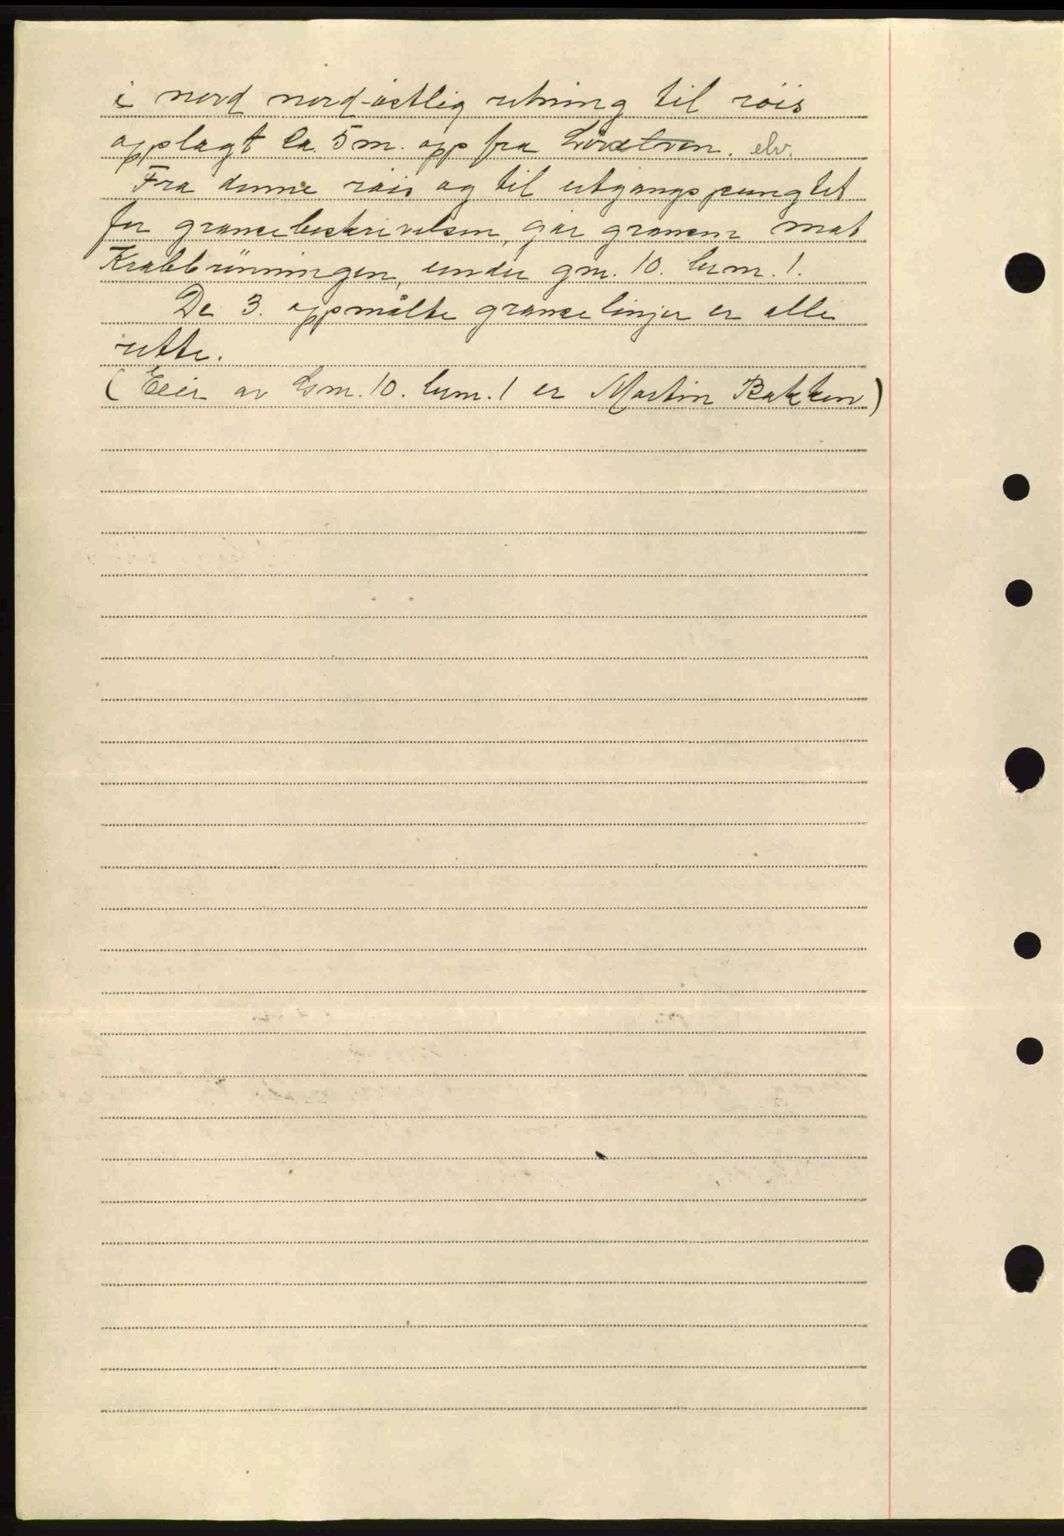 i nord nord-østlig retning til röis
opplagt ca. 5 m. opp fra elv.
Fra denne röis og til utgangspungtet
for grænsebeskrivelsen, går grænsen mot
Krabbrünningen, under gm. 10. brm. 1.
De 3. oppmålte grænselinjer er alle
rette.
(Eier av Gm. 10. brm. 1 er Martin Bakken)